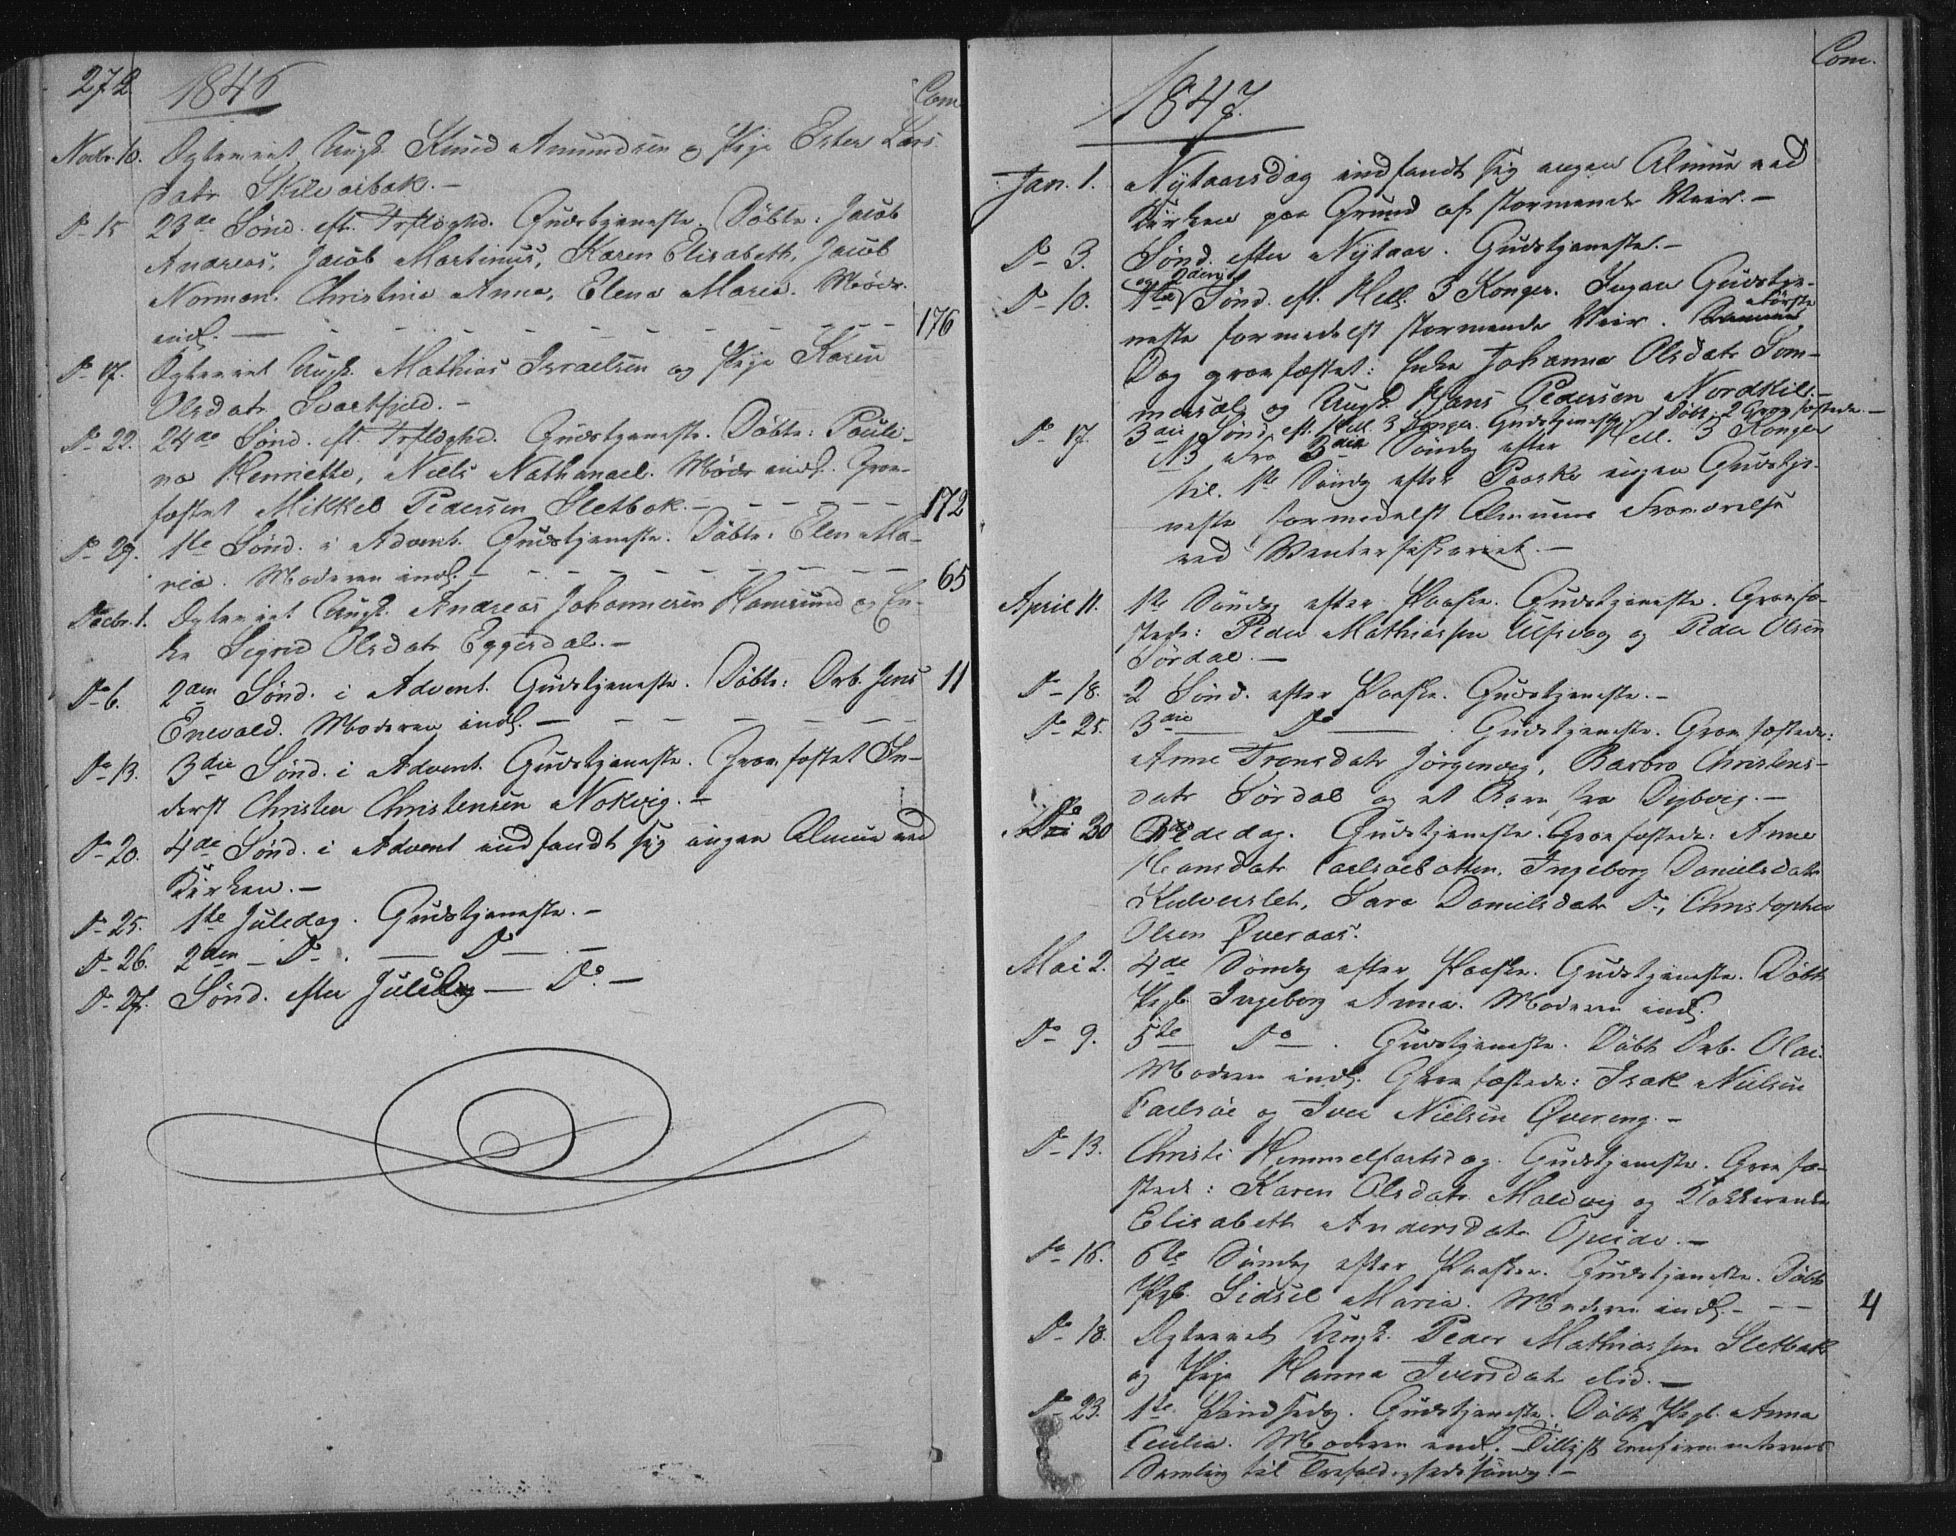 272 1846 Com.
Novbr. 10. Egteviet Ungk. Knud Amundsen og Pige Ester Lars
datr Skilvasbak. –
Do 15 23de Sønd. eft. Trftdghd. Gudstjeneste. Døbte: Jacob
Andreas, Jacob Martinus, Karen Elisabeth, Jacob
Norman. Christine Anna, Elena Maria. Mødr.
indl. – – – – – – – – 176
Do 17. Egteviet Ungk. Mathias Israelsen og Pige Karen
Olsdatr Svartfjeld. –
Do 22. 24de Sønd. eft. Trftdghd. Gudstjeneste. Døbte: Pauli-
na Henriette, Niels Nathanael. Mødr indl. Grav-
fæstet Mikkel Pedersen Sletbak. – – – – – 172
Do 29. 1te Sønd. i Advent. Gudstjeneste. Døbte: Elen Ma-
ria. Moderen indl. – – – – – – – – 65
Decbr. 1. Egteviet Ungk. Andreas Johannesen Hamsund og En-
ke Sigrid Olsdatr Eggesdal. –
Do 6. 2den Sønd. i Advent. Gudstjeneste. Døbte: Drb. Jens 11
Enevald. Moderen indl. – – – – – –
Do 13. 3die Sønd. i Advent. Gudstjeneste. Gravfæstet In-
derst Christen Christensen Nokvig. –
Do 20. 4de Sønd. i Advent indfandt sig ingen Almue ved
Kirken. –
Do 25. 1te Juledag. Gudstjeneste. –
Do 26. 2den – Do. – Do –
Do 27. Sønd. efter Juledag – Do. –
Com.
1847.
Jan. 1. Nytaarsdag indfandt sig ingen Almue ved
Kirken paa Grund af stormende Veir. –
Do 3. Sønd. efter Nytaar. Gudstjeneste. –
og 2den
Do 10. 1te Sønd. eft. Hell. 3 Konger. Ingen Gudstje-
neste formedelst stormende Veir. Første
Dag gravfæstet: Enke Johanna Olsdatr Som-
mersæl og Ungk. Hans Pedersen Nordskil. –
Do 17. 3die Sønd. eft. Hell. 3 Konger. Gudstjeneste. 1 Døbt. 2 Gravfæstede. –
NB Fra 3die Søndag efter Hell. 3 Konger
til 1te Søndag efter Paaske ingen Gudstje-
neste formedelst Almuens Fraværelse
ved Vinterfiskeriet. –
April 11. 1te Søndag efter Paaske. Gudstjeneste. Gravfæ-
stede: Peder Mathiassen Ulfsvog og Peder Olsen
Sørdal. –
Do 18. 2 Sønd. efter Paaske. Gudstjeneste. –
Do 25. 3die – Do – . Gudstjeneste. Gravfæstede:
Anne Tronsdatr Jørgenvog, Barbro Christens-
datr Sørdal og et Barn fra Dybvig. –
Do 30 Bededag. Gudstjeneste. Gravfæstede: Anne
Hansdatr Carlsøebotten, Ingeborg Danielsdatr
Kulverslet, Sara Danielsdatr Do, Christopher
Olsen Øveraas.
Mai 2. 4de Søndag efter Paaske. Gudstjeneste. Døbt
Pgb. Ingeborg Anna. Moderen indl.
Do 9. 5te – Do – . Gudstjeneste. Døbt Drb. Olai.
Moderen indl. Gravfæstede: Isak Nielsen
Carlsøe og Iver Nielsen Øvereng. –
Do 13. Christi Himmelfartsdag. Gudstjeneste. Gravfæ-
stede: Karen Olsdatr Maldvig og Klokkerenke
Elisabeth Andersdatr Opeide. –
Do 16. 6te Søndag efter Paaske. Gudstjeneste. Døbt
Pgb. Sidsel Maria. Moderen indl. – – – 4
Do 18. Egteviet Ungk. Peder Mathiassen Sletbak
og Pige Hanna Iversdatr Lid. –
Do 23. 1te Pindsedag. Gudstjeneste. Døbt Pgb. Anna
Cecilia. Moderen indl. Tillyst Confirmanternes
Samling til Trefoldighedssøndag. –